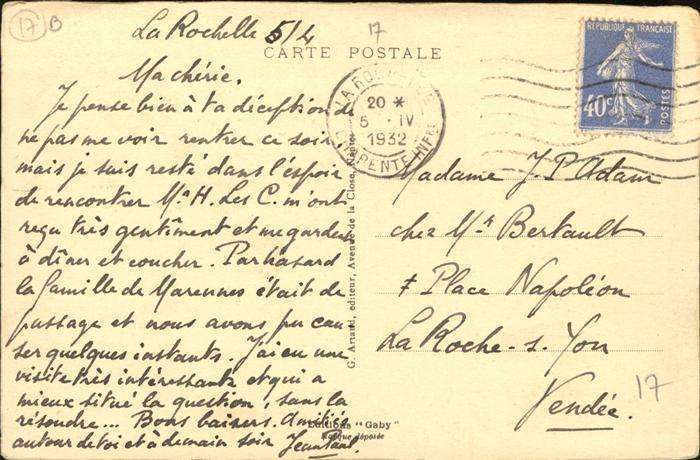 17 B
La Rochelle 5/4
17
CARTE POSTALE
Ma chérie.
Je pense bien à ta déception de
ne pas me voir rentrer ce soir
mais je suis resté dans l'espoir
de rencontrer Mr H. Les C. m'ont
reçu très gentiment et me gardent
à dîner et coucher. Par hasard
la famille de Marennes était de
passage et nous avons pu cau-
ser quelques instants. J'ai eu une
visite très intéressante et qui a
mieux situé la question, sans la
résoudre... Bons baisers. Amitiés
autour de toi et à demain soir Jean Paul
LA ROCHELLE
20 *
5 · IV
1932
CHARENTE INFRE
REPUBLIQUE FRANÇAISE
40c
POSTES
Madame J. P Adam
chez Mr Bertault
7 Place Napoléon
La Roche-s. Yon
Vendée.
17
G. Artaud, éditeur, Avenue de la Close, Nantes
Editions "Gaby"
Marque déposée